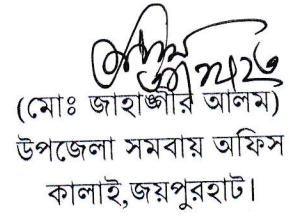 (মোঃ জাহাঙ্গীর আলম)
উপজেলা সমবায় অফিস
কালাই,জয়পুরহাট।